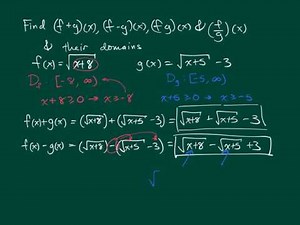 Find (f+g)(x), (f-g)(x), (fg)(x) & (f/g)(x)
& their domains
f(x) = √(x+8) g(x) = √(x+5) - 3
D_f [-8, ∞) D_g [-5, ∞)
x+8≥0 → x≥-8 x+5≥0 → x≥-5
f(x)+g(x) = (√(x+8)) + (√(x+5) - 3) = √(x+8) + √(x+5) - 3
f(x)-g(x) = (√(x+8)) - (√(x+5) - 3) = √(x+8) - √(x+5) + 3
√